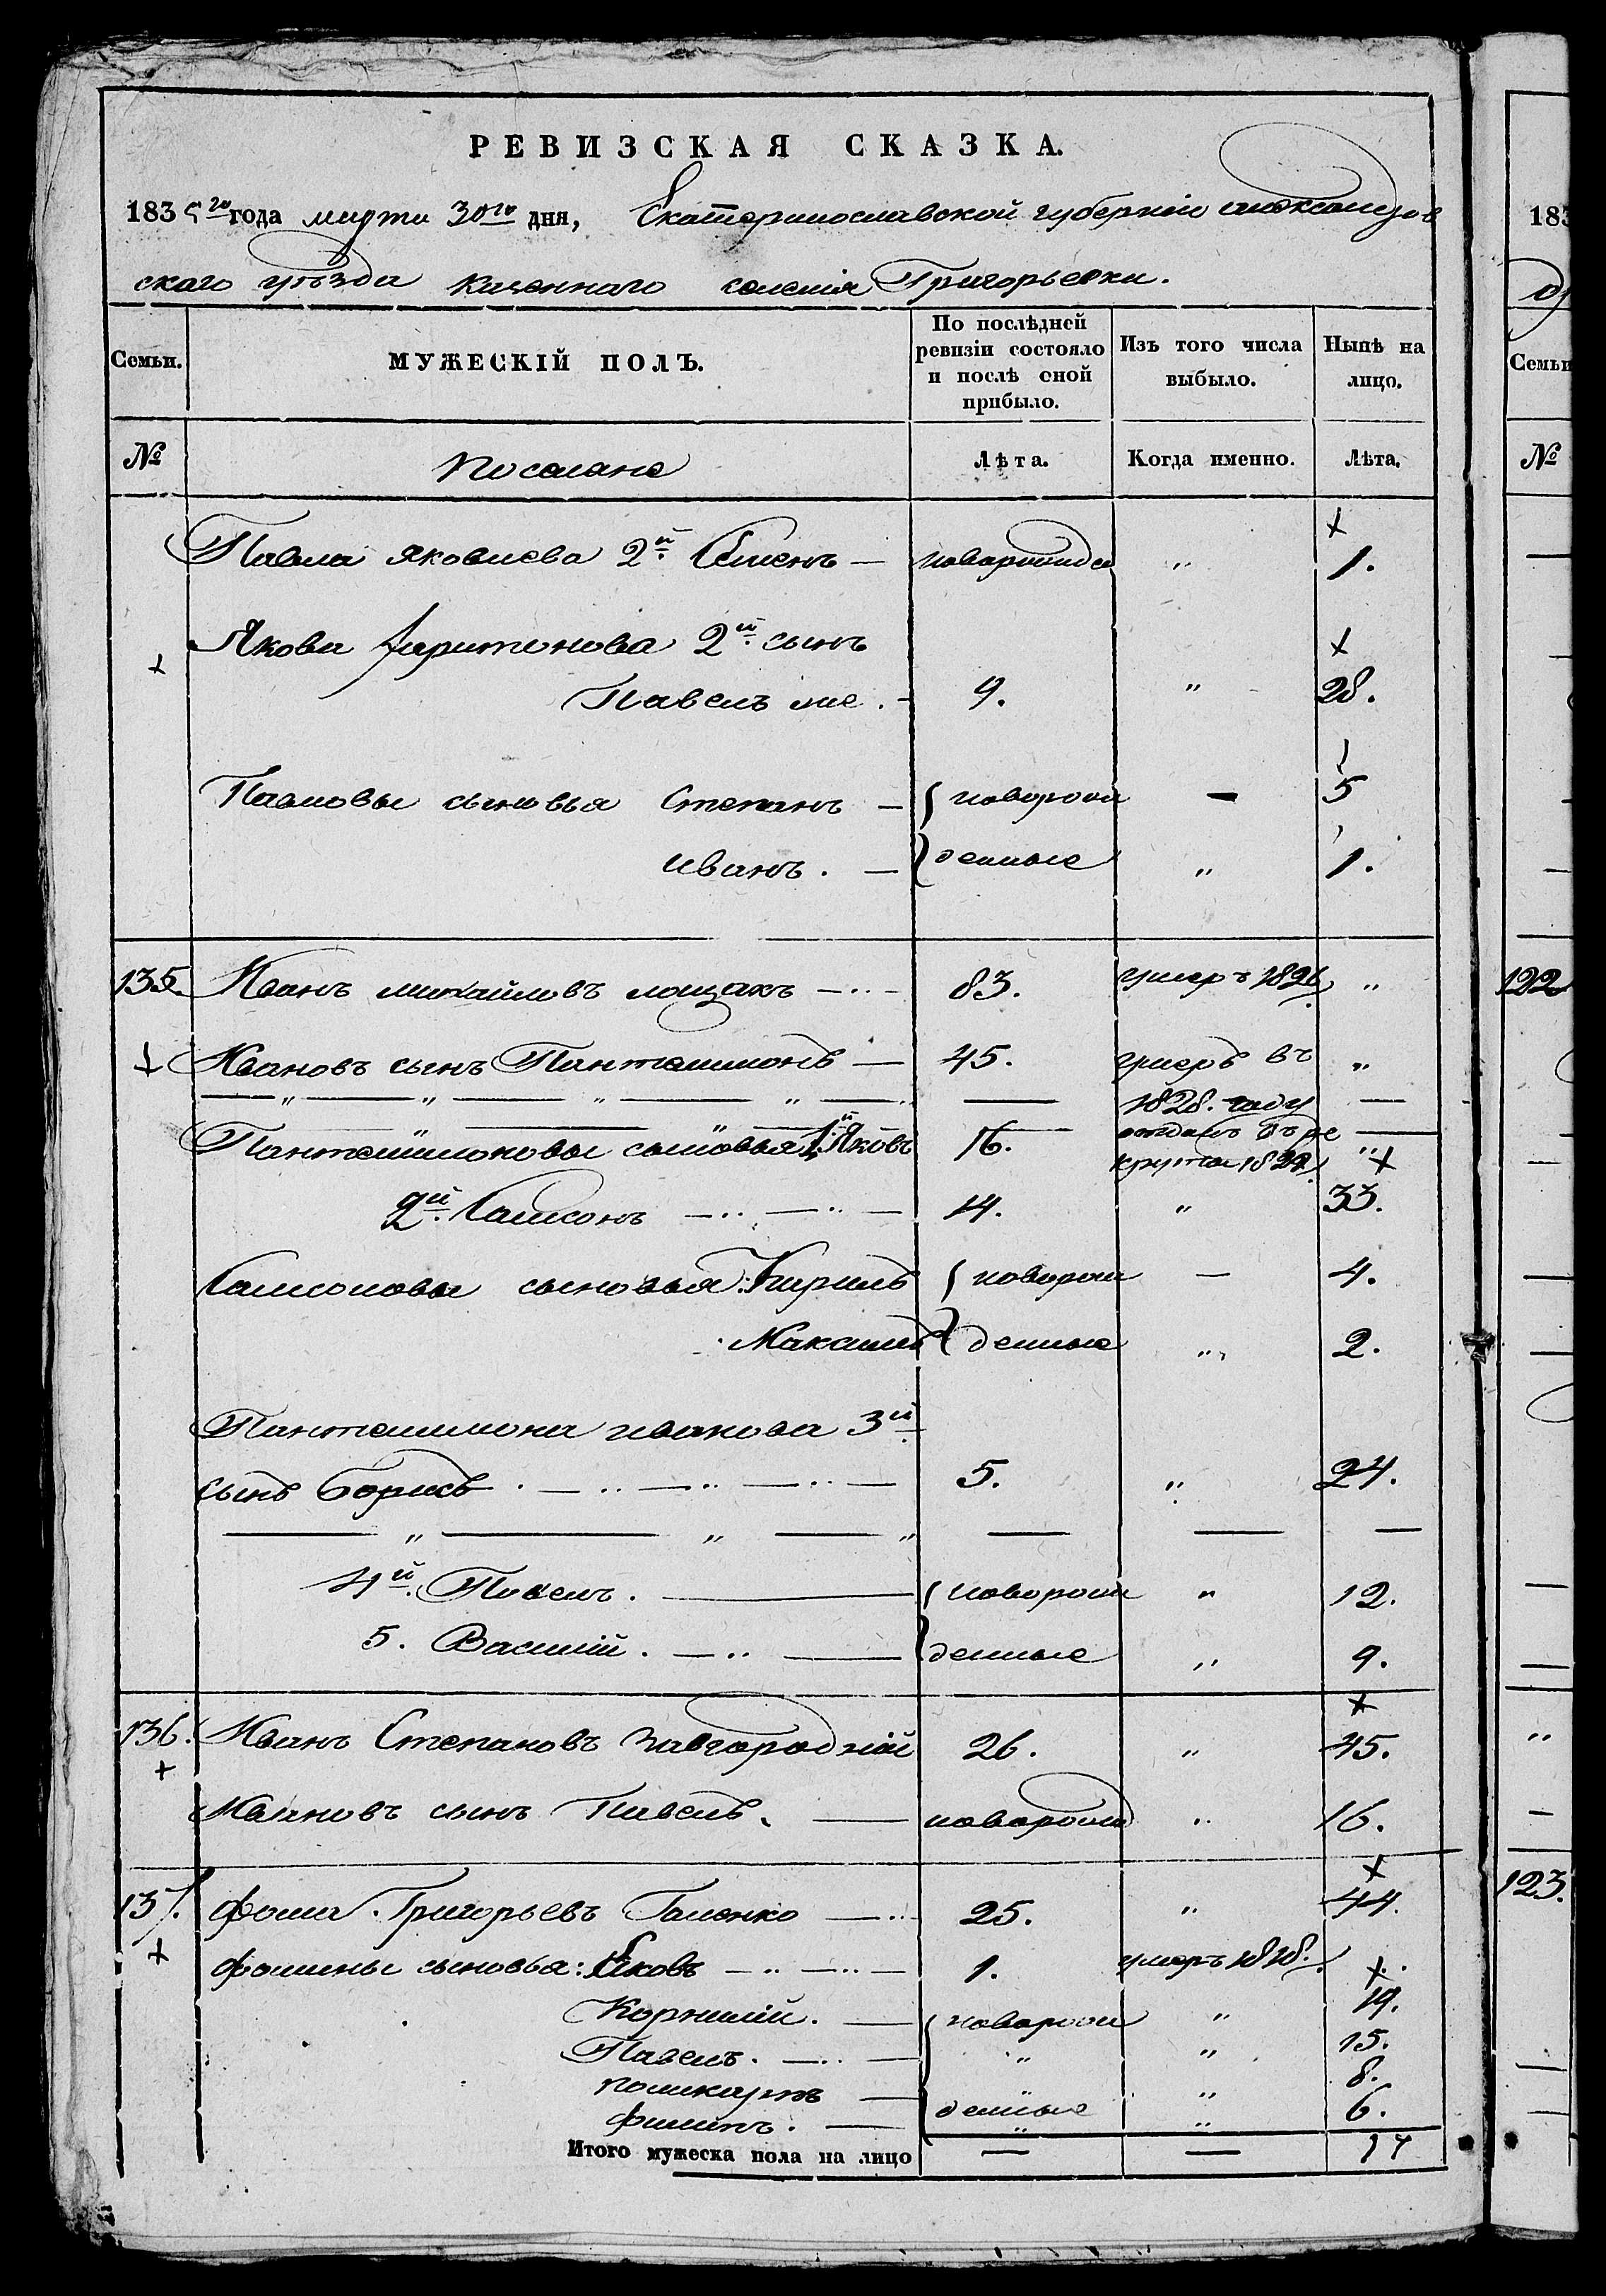 РЕВИЗСКАЯ СКАЗКА.
1835го года марта 30го дня, Екатеринославской губерніи александров
скаго уѣзда казеннаго селенія Григорьевки.
Семьи. МУЖЕСКІЙ ПОЛЪ. По послѣдней ревизіи состояло и послѣ оной прибыло. Изъ того числа выбыло. Нынѣ на лицо.
№ поселяне Лѣта. Когда именно. Лѣта.
Павла яковлева 2й Семенъ — новорожде „ 1.
Якова харитонова 2й сынъ
Павелъ же. - 9. „ 28.
Павловы сыновья Степанъ — новорож — 5
иванъ. — денные „ 1.
135. Иванъ михайловъ лощакъ — 83. умеръ 1826 „
Ивановъ сынъ Пантелимонъ — 45. умеръ въ „
1828. году
Пантелимоновы сыновья 1й Яковъ 16. отданъ въ ре „
круты 1827.
2й Самсонъ — 14. „ 33.
Самсоновы сыновья: Кирилъ новорож — 4.
Максимъ денные „ 2.
Пантелимона иванова 3й
сынъ Борисъ 5. „ 24.
4й Павелъ. — новорож „ 12.
5. Василій. — денные „ 9.
136. Иванъ Степановъ завгородній 26. „ 45.
Ивановъ сынъ Павелъ. — новорожд „ 16.
137. фома Григорьевъ Галенко — 25. „ 44.
фомины сыновья: Яковъ — 1. умеръ 1818. „
Корнилій. — новорож „ 19.
Павелъ. — „ „ 15.
поликарпъ — „ 8.
филипъ. — денные „ 6.
Итого мужеска пола на лицо — — 17
183
Семьи
№
122
123.